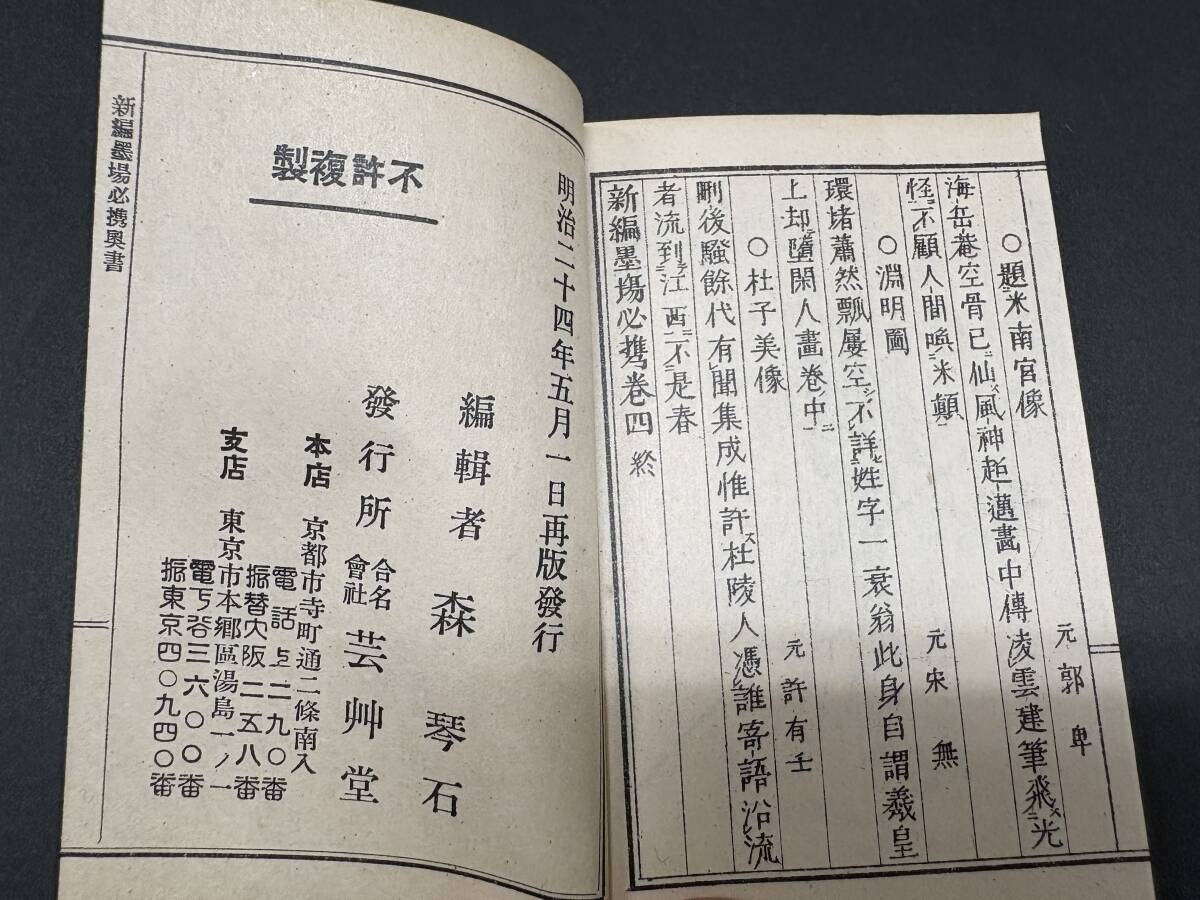 ○題米南宮像
元郭畀
海岳菴空骨已仙風神超邁畫中傳凌雲建筆飛光
怪不顧人間喚米顛
元宋無
○淵明圖
環堵蕭然瓢屢空不詳姓字一衰翁此身自謂羲皇
上却墮閑人畫卷中
元許有壬
○杜子美像
刪後騷餘代有聞集成惟許杜陵人憑誰寄語沿流
者流到江西不是春
新編墨場必携卷四終
明治二十四年五月一日再版發行
不許複製
編輯者 森琴石
發行所 合名會社 芸艸堂
本店 京都市寺町通二條南入
電話上二九〇番
振替大阪二五八番
支店 東京市本郷區湯島一ノ一
電下谷三六〇〇番
振東京四〇九四〇番
新編墨場必携奥書